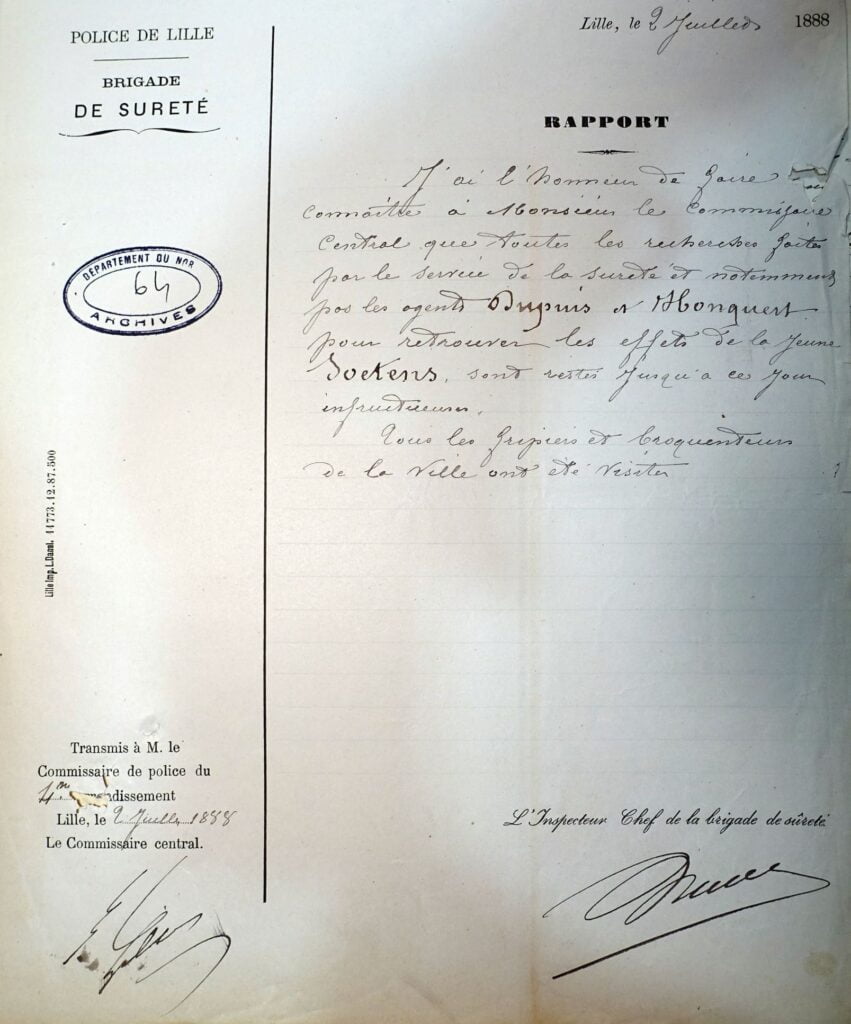 POLICE DE LILLE
BRIGADE
DE SURETÉ
Lille, le 2 Juillet 1888
RAPPORT
J'ai l'honneur de faire
connaître à Monsieur le Commissaire
Central que toutes les recherches faites
par le service de la sureté et notamment
par les agents Dupuis et Monquert
pour retrouver les effets de la jeune
Soekens, sont restés jusqu'à ce jour
infructueuses.
Tous les fripiers et broquenteurs
de la Ville ont été visités
DÉPARTEMENT DU NOR
64
ARCHIVES
Lille Imp. L. Danel. 11773.12.87.500
Transmis à M. le
Commissaire de police du
4me ondissement
Lille, le 2 Juillet 1888
Le Commissaire central.
L'Inspecteur Chef de la brigade de sûreté